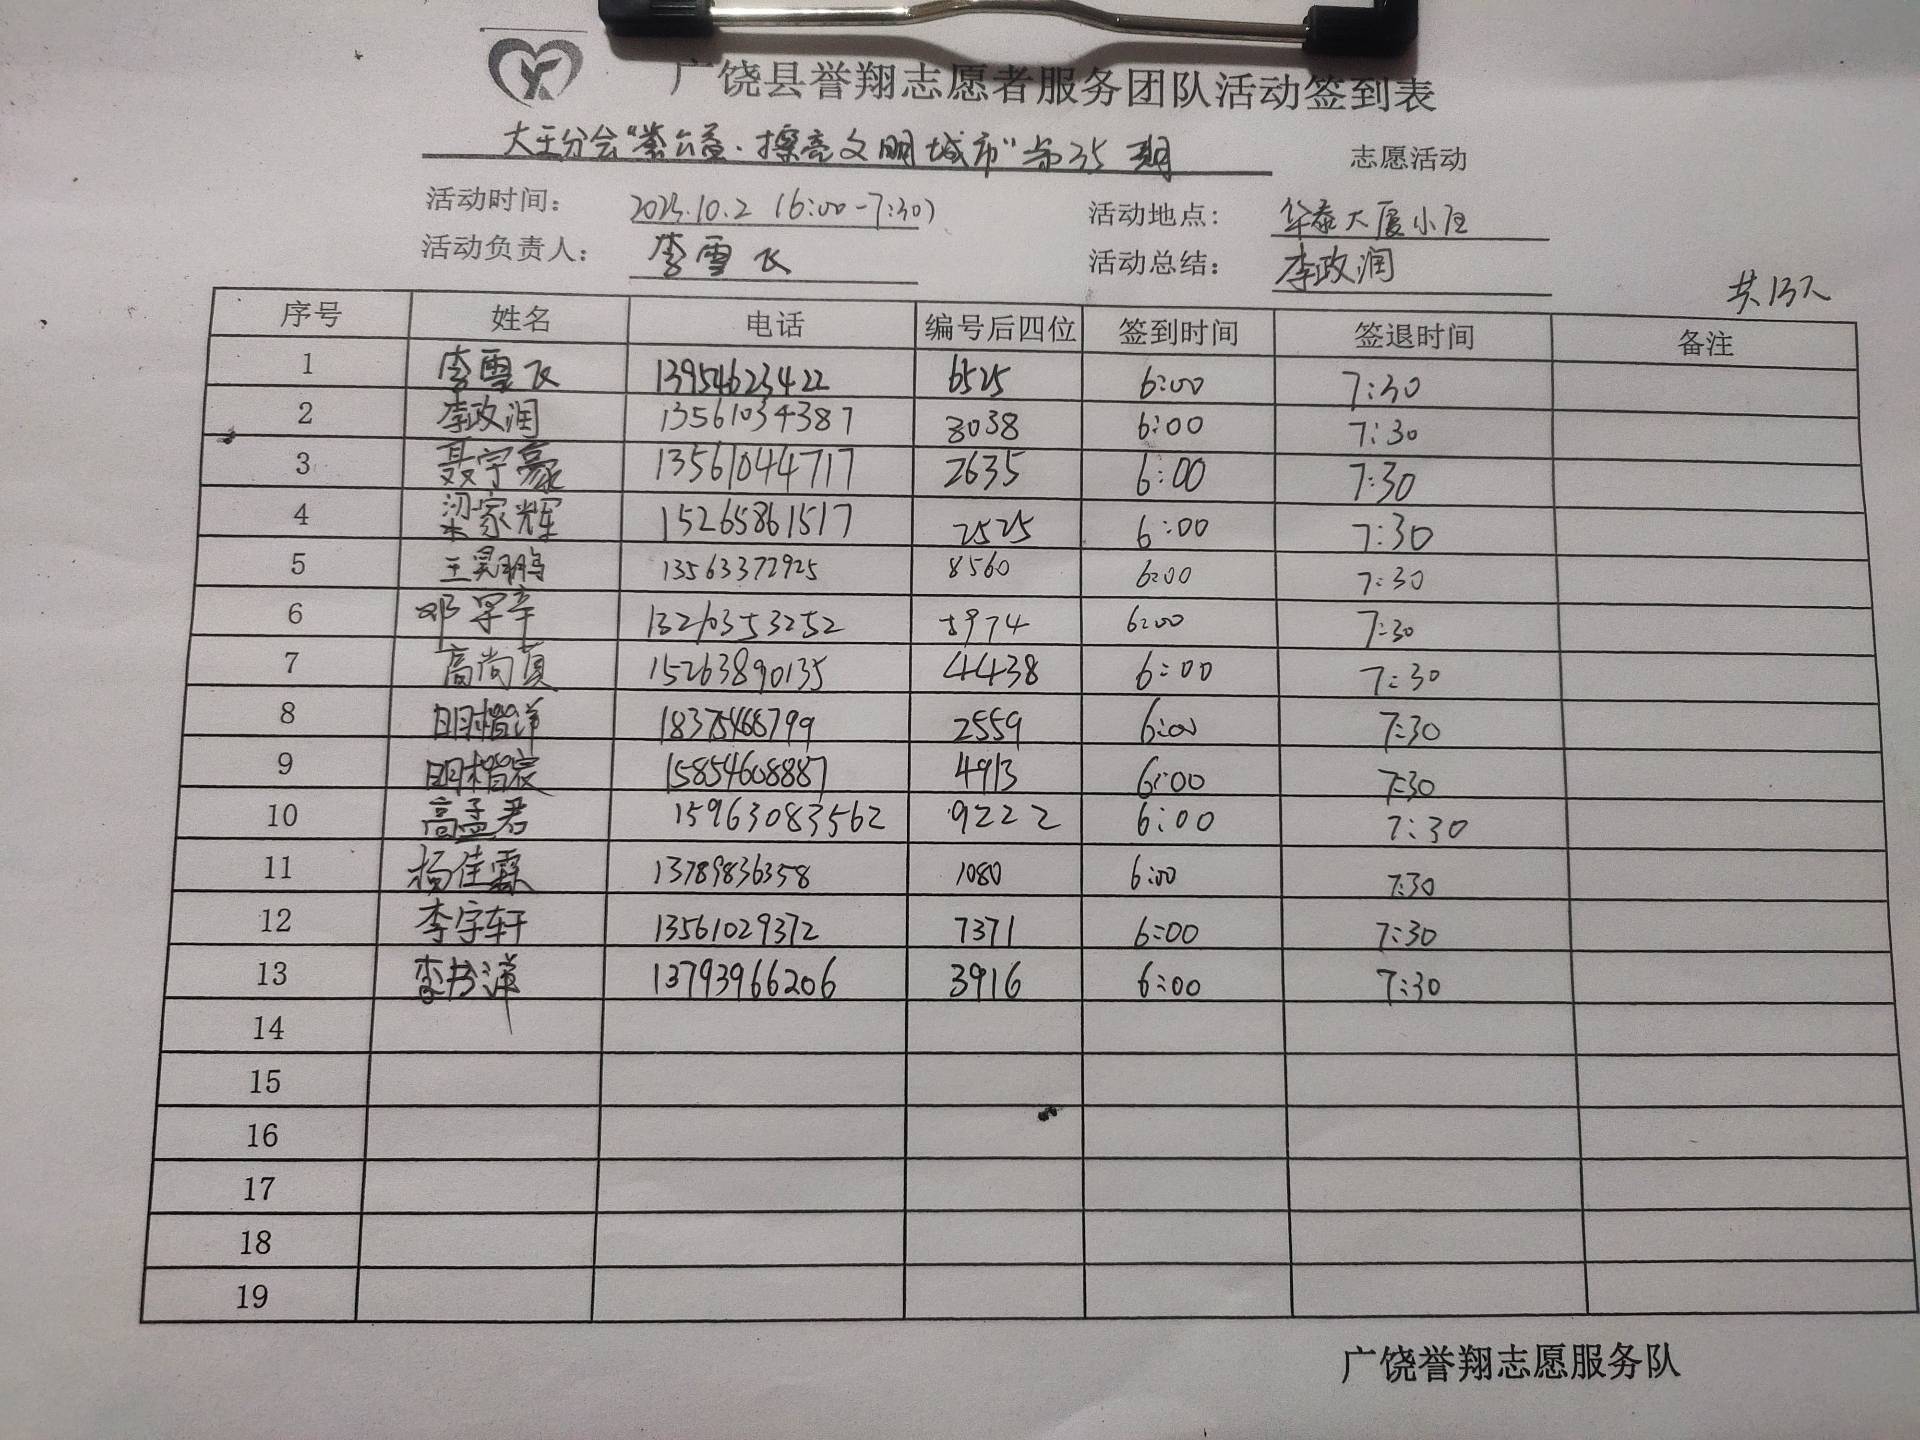 广饶县誉翔志愿者服务团队活动签到表
大王分会“攀公益·擦亮文明城市”第35期 志愿活动
活动时间： 2025.10.2 (6:00-7:30) 活动地点： 华泰大厦小区
活动负责人： 李雪飞 活动总结： 李政润
共13人
序号 姓名 电话 编号后四位 签到时间 签退时间 备注
1 李雪飞 13954623422 6525 6:00 7:30
2 李政润 13561034387 8038 6:00 7:30
3 聂宇豪 13561044717 2635 6:00 7:30
4 梁家辉 15265861517 2525 6:00 7:30
5 王昊鹏 13563372925 8560 6:00 7:30
6 邓宇辛 13210353252 5974 6:00 7:30
7 高尚真 15263890135 4438 6:00 7:30
8 明楷洋 18375468799 2559 6:00 7:30
9 明楷宸 15854608887 4913 6:00 7:30
10 高孟君 15963083562 9222 6:00 7:30
11 杨佳霖 13789836358 1080 6:00 7:30
12 李宇轩 13561029372 7371 6:00 7:30
13 李书洋 13793966206 3916 6:00 7:30
14
15
16
17
18
19
广饶誉翔志愿服务队